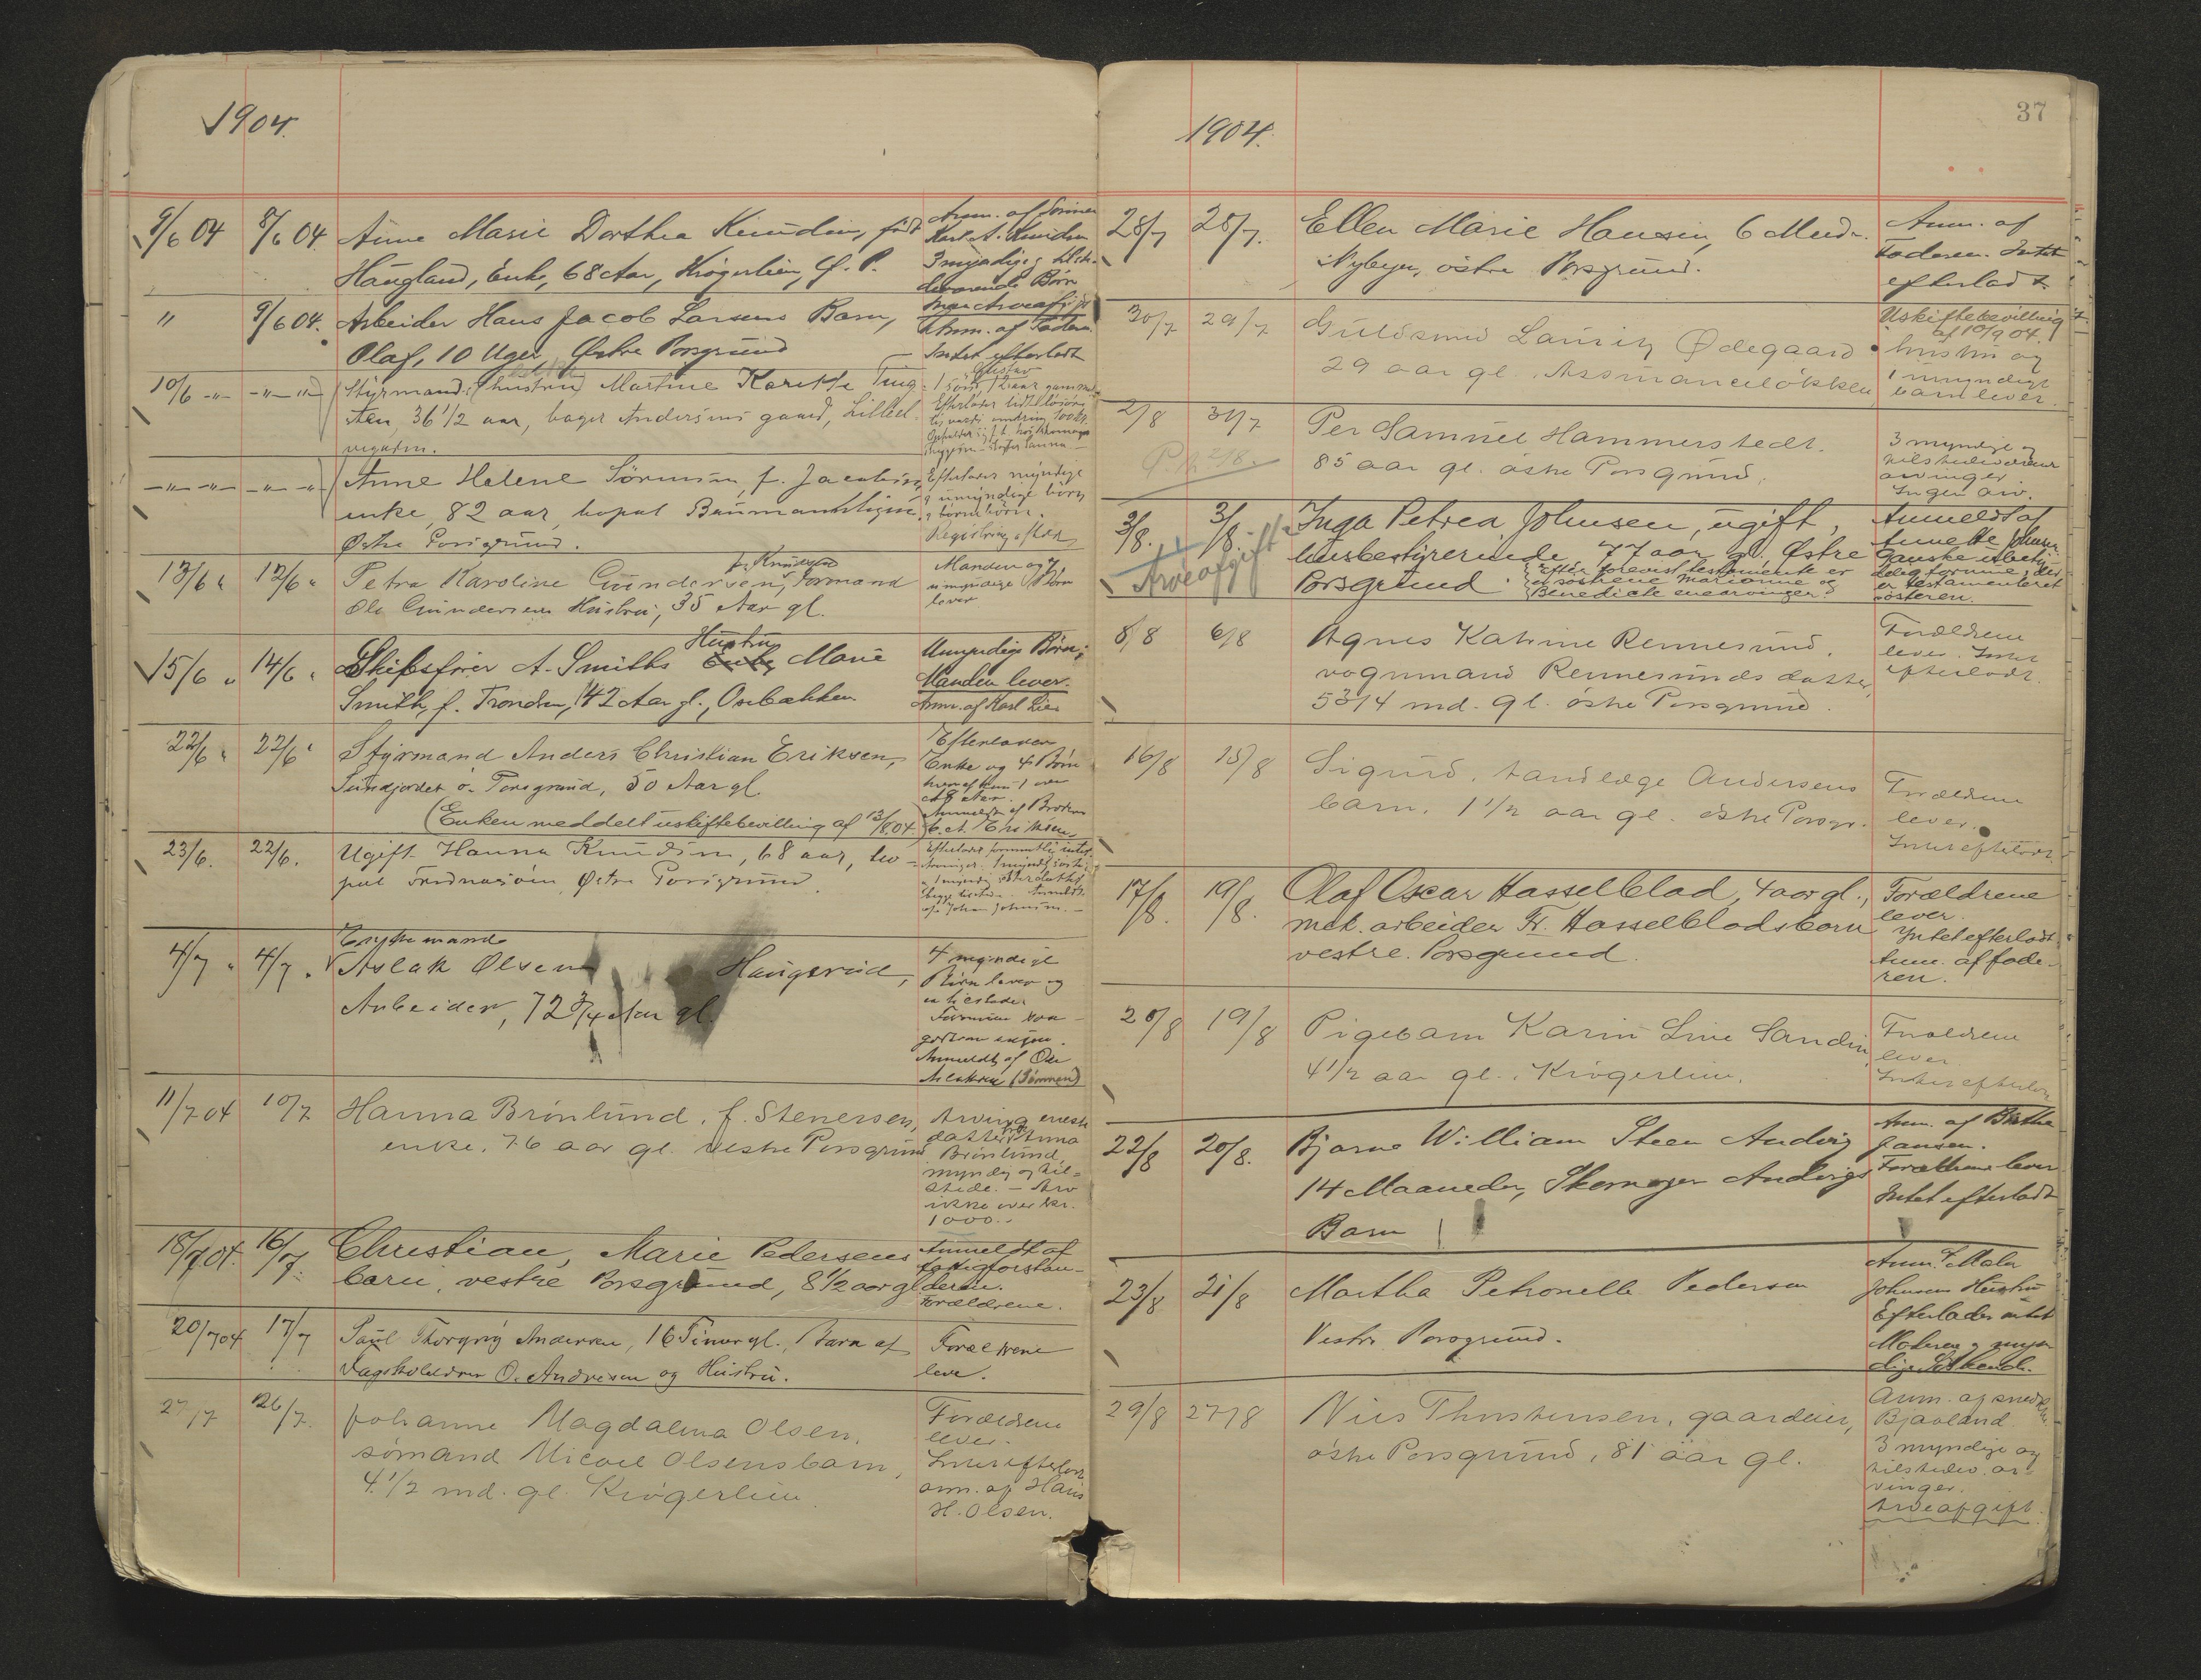 1904.
9/6 04 8/6 04 Anne Marie Dorthea Knudsen, født
Haugland, Enke, 68 Aar, Krøgerlien, Ø. P.
Anm. af Sønnen
Karl A. Knudsen
3 myndige, tilste-
deværende Børn
Ingen Arveafgift
" 9/6 04. Arbeider Hans Jacob Larsens Barn,
Olaf, 10 Uger, Østre Porsgrund
Anm. af Faderen.
Intet efterladt
10/6 -"- -"- -"- Styrmands (hustru) Martine Karethe Ting-
sten, 36 1/2 aar, bager Andersens gaard, Lilleel-
vegaten.
Gustav
1 søn 12 aar gammel
Efterlader lidt løsøre
værdi omkring 100 kr.
-"- -"- -"- -"- Anne Helene Sørensen, f. Jacobsen,
enke, 82 aar, bopæl Baumannstigen,
Østre Porsgrund.
Efterlader myndige
& umyndige børn
& børnebørn.
Registrering
13/6 " 12/6 " Petra Karoline Gundersen, f. Knudsen formand
Ole Gundersens Hustru, 35 Aar gl.
Manden og 7
umyndige Børn
lever
15/6 " 14/6 " Skibsfører A. Smiths Enke Hustru Marie
Smith, f. Trondsen, 42 Aar gl., Osebakken
Umyndige Børn;
Manden lever.
Anm. af Karl Lie
22/6 " 22/6 " Styrmand Anders Christian Eriksen,
Sundjordet ø. Porsgrund, 50 Aar gl.
(Enken meddelt uskiftebevilling af 13/8 04.
Efterlader
Enke og 4 Børn
hvoraf kun 1 over
18 Aar.
Anmeldt af Broderen
C. A. Eriksen
23/6. 22/6. Ugift Hanna Knudsen, 68 aar, bo-
pæl Frednæsøen, Østre Porsgrund.
Efterlader formentlig intet.
Arvinger: 1 myndig søster
& 1 myndig
begge tilstede. Anmeldt
af Johan Johnsen. -
4/7 " 4/7 " Enkemand
Aslak Olsen Haugerud,
Arbeider, 72 3/4 Aar gl.
4 myndige
Børn lever og
er tilstede.
Formuen saa
godtsom ingen.
Anmeldt af Ole
Aslaksen (Sønnen)
11/7 04 10/7 Hanna Brønlund, f. Stenersen,
enke, 76 aar gl. vestre Porsgrund
Arving eneste
datter frk Anna
Brønlund,
myndig og til-
stede. - Arv
ikke over kr.
1000.-
18/7 04. 16/7. Christian, Marie Pedersens
barn, vestre Porsgrund, 8 1/2 aar gl
Anmeldt af
fattigforstan-
deren.
Forældrene.
20/7 04 17/7 Paul Thorgny Andersen, 16 Timer gl., Barn af
Vagtholderen O. Andresen og Hustru.
Forældrene
leve.
27/7 26/7. Johanne Magdalena Olsen,
sømand Micael Olsens barn,
4 1/2 md. gl. Krøgerlien
Forældrene
lever.
Intet efterladt
anm. af Hans
H. Olsen.
37
1904.
28/7 28/7. Ellen Marie Hansen, 6 Mnd.
Nybyen, østre Porsgrund.
Anm. af
Faderen. Intet
efterladt
30/7 29/7 Guldsmed Lauritz Ødegaard
29 aar gl. Assmanceløkken
Uskiftebevilling
af 10/9 04.
hustru og
1 umyndigt
barn lever.
2/8 31/7 Per Samuel Hammerstedt.
85 aar gl. østre Porsgrund.
P. 2/8.
3 myndige og
tilstedeværende
arvinger
Ingen arv.
3/8. 3/8. Inga Petrea Johnsen, ugift,
husbestyrerinde 77 aar gl. Østre
Porsgrund.
Efter forevist testamente er
søstrene Marianne og
Benedicte enearvinger.
Arveafgift
Anmeldt af
Annette Johnsen
Ganske ubety-
delig formue, der
er testamenteret
søsteren.
8/8 6/8 Agnes Katrine Rennesund,
vognmand Rennesunds datter,
5 3/4 md. gl. østre Porsgrund.
Forældrene
lever. Intet
efterladt.
16/8 15/8 Sigurd, tandlæge Andersens
barn, 1 1/2 aar gl. østre Porsgr.
Forældrene
lever.
Intet efterladt.
17/8. 19/8. Olaf Oscar Hasselblad, 4 aar gl.,
mek. arbeider Fr. Hasselblads barn
vestre Porsgrund.
Forældrene
lever.
Intet efterladt
Anm. af fade-
ren.
20/8 19/8 Pigebarn Karin Line Sandin,
4 1/2 aar gl., Krøgerlien.
Forældrene
lever
Intet efterladt
22/8 20/8. Bjarne William Steen Andvig
14 Maaneder, Skomager Andvigs
Barn
Anm. af Birthe
Jansen.
Forældrene lever
Intet efterladt
23/8 21/8 Martha Petronelle Pedersen
Vestre Porsgrund.
Anm. af Maler
Johnsens Hustru
Efterlader intet
Moderen & myn-
dige Søskende.
29/8 27/8 Niels Thorstensen, gaardeier,
østre Porsgrund, 81 aar gl.
Anm. af snedker
Bjaaland.
3 myndige og
tilstedev. ar-
vinger.
Arveafgift.